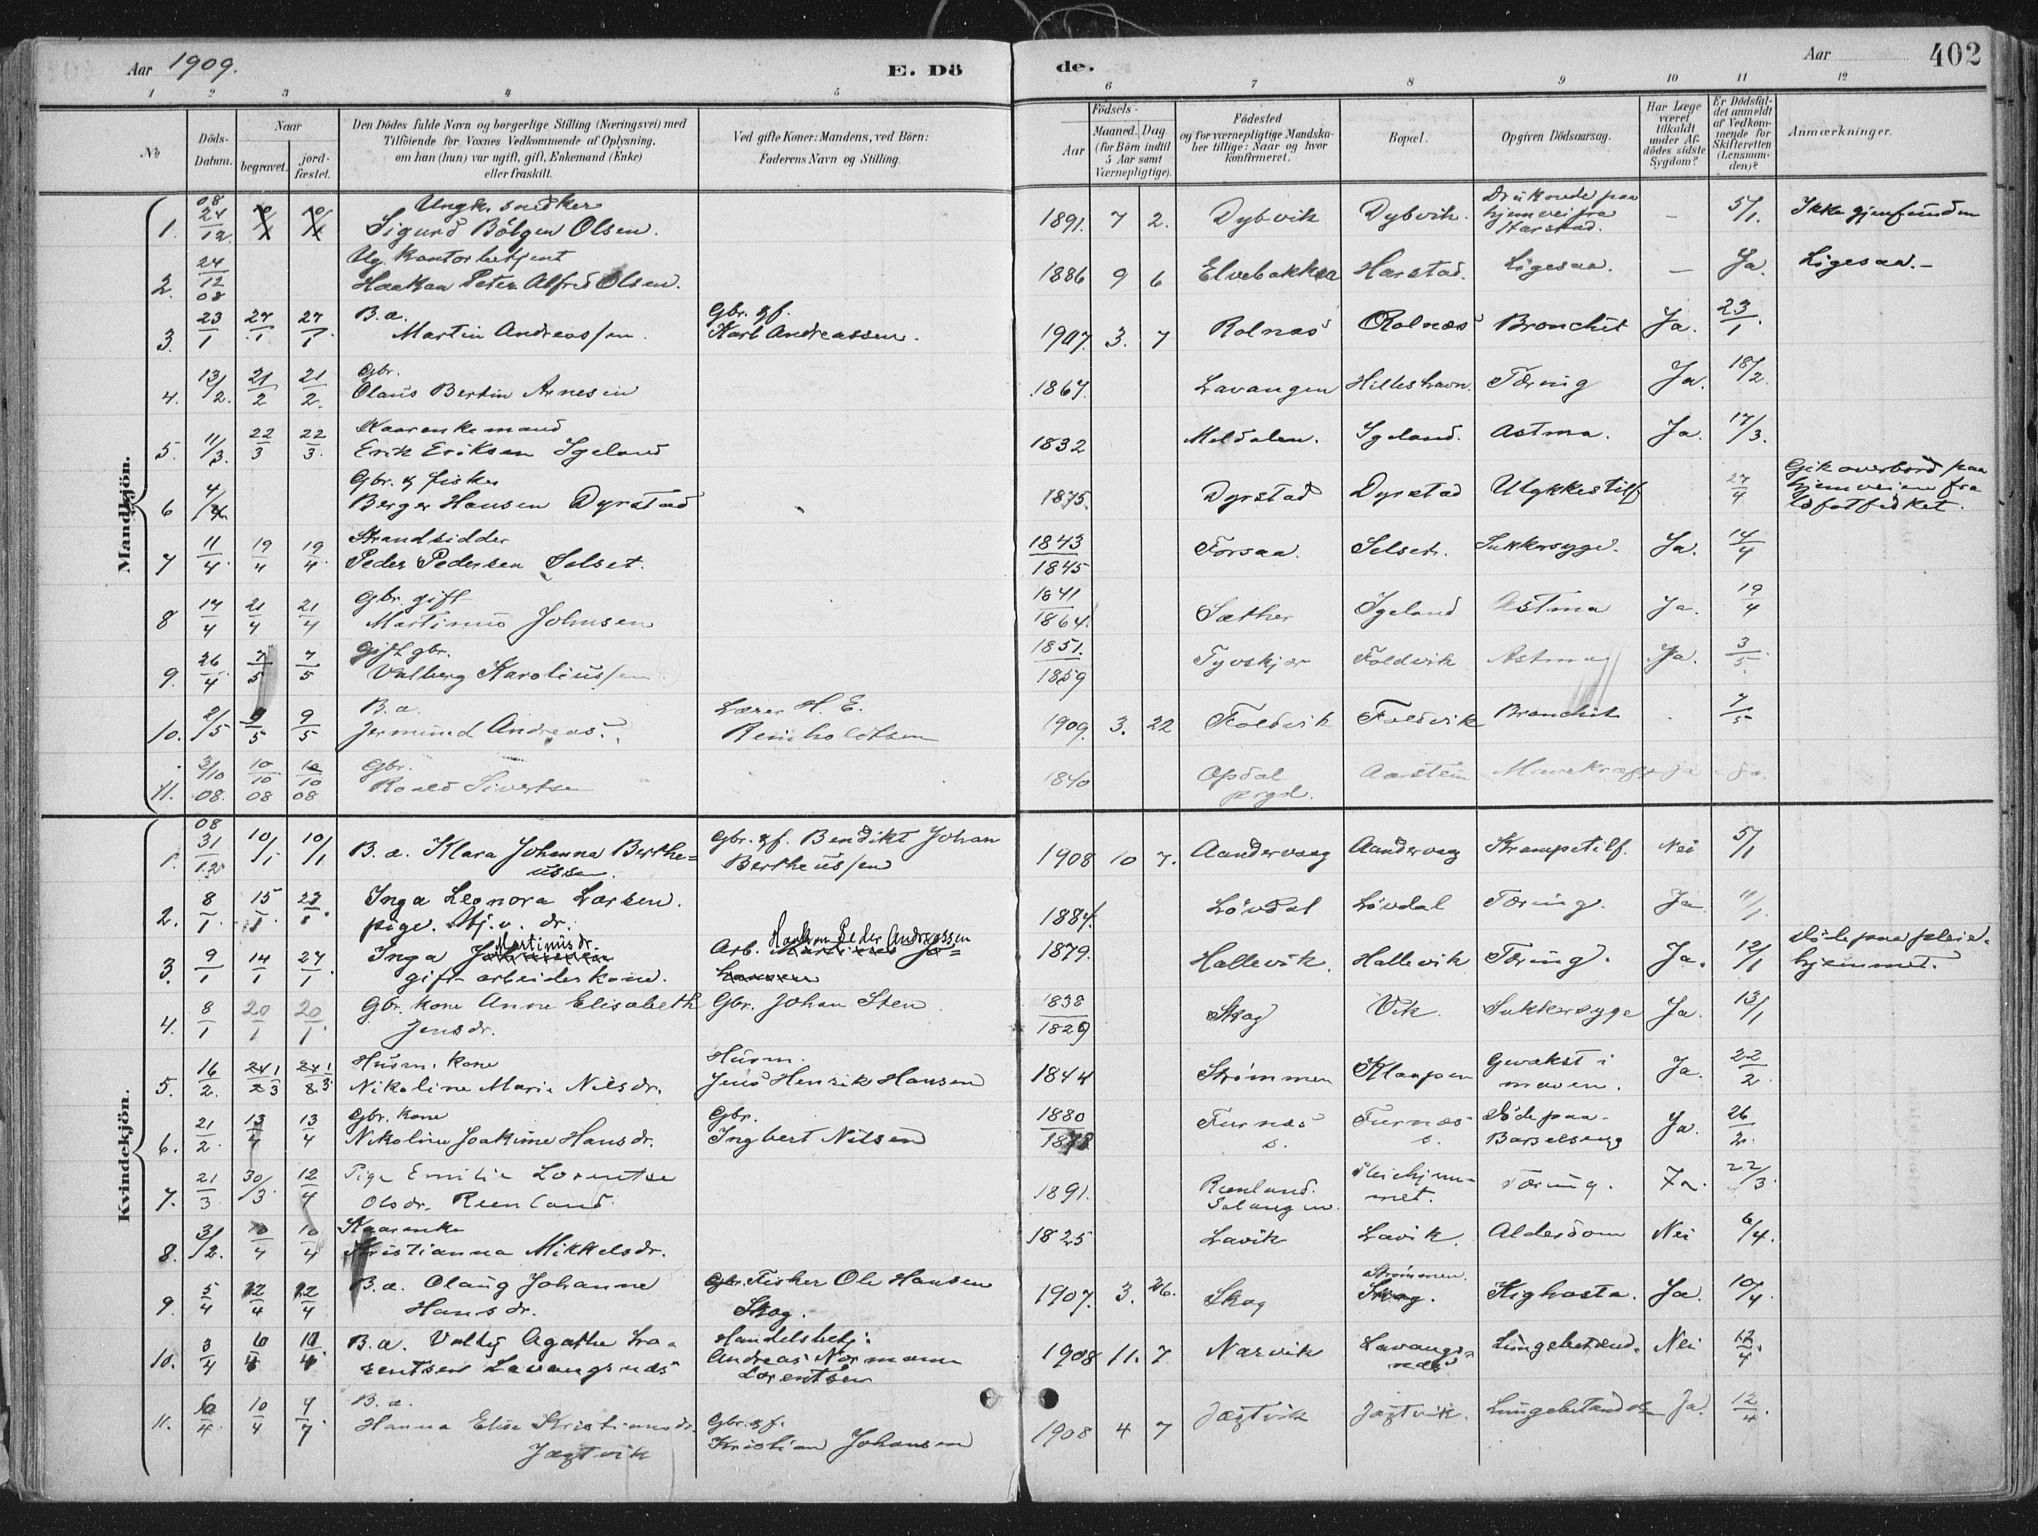 Aar 1909.
E. Dö
de.
Aar
402
1 2 3 4 5 6 7 8 9 10 11 12
No
Döds-Datum.
Naar
begravet.
jord-fæstet.
Den Dödes fulde Navn og borgerlige Stilling (Næringsvei) med
Tilföiende for Voxnes Vedkommende af Oplysning,
om han (hun) var ugift, gift, Enkemand (Enke)
eller fraskilt.
Ved gifte Koner: Mandens, ved Börn:
Faderens Navn og Stilling.
Födsels-
Aar
Maaned. Dag.
(for Börn indtil
5 Aar samt
Værnepligtige).
Födested
og for værnepligtige Mandska-
ber tillige: Naar og hvor
konfirmeret.
Bopæl.
Opgiven Dödsaarsag.
Har Læge
været
tilkaldt
under Af-
dödes sidste
Sygdom?
Er Dödsfal-
det anmeldt
af Vedkom-
mende for
Skifteretten
(Lensman-
den)?
Anmærkninger.
Mandkjön.
1. 08 24/12 Ungk. snedker Sigurd Bölgen Olsen. 1891. 7 2. Dybvik Dybvik. Druknede paa hjemvei fra Harstad. – 5/1. Ikke gjenfunden
2. 24/12 08 Ug. Kontorbetjent Haakon Peter Alfred Olsen. 1886 9 6 Elvebakken Harstad. Ligesaa. – Ja. Ligesaa.–
3. 23/1 27/1 27/1 B.a. Martin Andreassen. Gbr. & f. Karl Andreassen. 1907. 3. 7 Rolnæs Rolnæs Bronchit Ja. 23/1.
4. 13/2. 21/2 21/2. Gbr. Olaus Bertin Arnesen 1867. Lavangen Hilleshavn. Tæring Ja. 18/2.
5. 11/3. 22/3 22/3. Kaarenkemand Erik Eriksen Igeland 1832 Meldalen. Igeland. Astma. Ja. 17/3.
6 4/4 Gbr. & fisker Berger Hansen Dyrstad 1875. Dyrstad Dyrstad Ulykkestilf 27/4 Gik overbord paa hjemveien fra lofotfisket.
7 11/4. 19/4 19/4. Strandsidder Peder Pedersen Selset. 1843 1845 Forsaa. Selset. Sukkersyge. Ja. 14/4
8 17/4 21/4 21/4 Gbr. gift Martinus Johnsen 1841 1864. Sæther Igeland Astma Ja. 19/4
9. 26/4. 7/5 7/5 Gift gbr. Valberg Karoliussen 1851. 1859 Tyvskjær Foldvik Astma Ja. 3/5.
10. 2/5 9/5 9/5 B.a. Jermund Andreas. Lærer H. E. Reinholdtsen 1909. 3. 22 Foldvik Foldvik Bronchit 7/5
11. 3/10 08. 10/10 08 10/10 08 Gbr. Roald Sivertsen 1840 Opdal prgd. Aarstein Mavekræft Ja Ja.
Kvindekjön.
1. 08 31/12 10/1 10/1 B.a. Klara Johanna Bertheussen. Gbr. & f. Bendikt Johan Bertheussen 1908 10 7. Aandervaag Aandervaag Krampetilf. Nei 5/1
2. 8/1. 15/1 23/1. Inga Leonora Larsen. pige. dr. 1884. Lövdal Lövdal Tæring. Ja 11/1.
3. 9/1 14/1 27/1. Inga Martinusdr. gift arbeiderkone. Arb. Haakon Peder Andreassen 1879. Hallevik. Hallevik Tæring. Ja. 12/1 Döde paa pleiehjemmet.
4. 8/1 20/1 20/1. Gbr. kone Anne Elisabeth Jensdr. Gbr. Johan Sten 1838 1829 Skog Vik. Sukkersyge Ja. 13/1
5. 16/2. 24/2 1/3 24/2 1/3 Husm. kone Nikoline Marie Nilsdr. Husm. Jens Henrik Hansen 1844 Strömmen Klaapen Gevækst i maven. Ja. 22/2.
6. 21/2 13/4 13/4 Gbr. kone Nikoline Joakime Hansdr. Gbr. Ingbert Nilsen 1880 1878 Furnæs. Furnæs. Döde paa Barselseng Ja. 26/2.
7. 21/3 30/3 12/4 Pige Emilie Lorentse Olsdr. Reenland. 1891. Reenland. Salangen. Pleiehjemmet. Tæring. Ja. 22/3.
8. 3/2. 10/4 10/4 Kaarenke Kristianna Mikkelsdr. 1825 Lavik Lavik. Alderdom Nei 6/4.
9. 5/4 12/4 12/4 B.a. Olaug Johanne Hansdr. Fisker Ole Hansen Skog. 1907. 3. 26. Skog Strömmen. Skog. Kighosta. Ja. 10/4
10. 3/4 6/4 11/4. B.a. Valtig Agathe Lorentsen Lavangsnæs Handelsbetj. Andreas Normann Lorentsen 1908 11. 7. Narvik Lavangsnæs Lungebetænd. Nei 12/4.
11. 6/4. 10/4 4/7 B.a. Hanna Elise Kristiansdr. Jægtvik Gbr. & f. Kristian Johansen 1908 4 7 Jægtvik Jægtvik. Lungebetændelse Ja. 12/4.